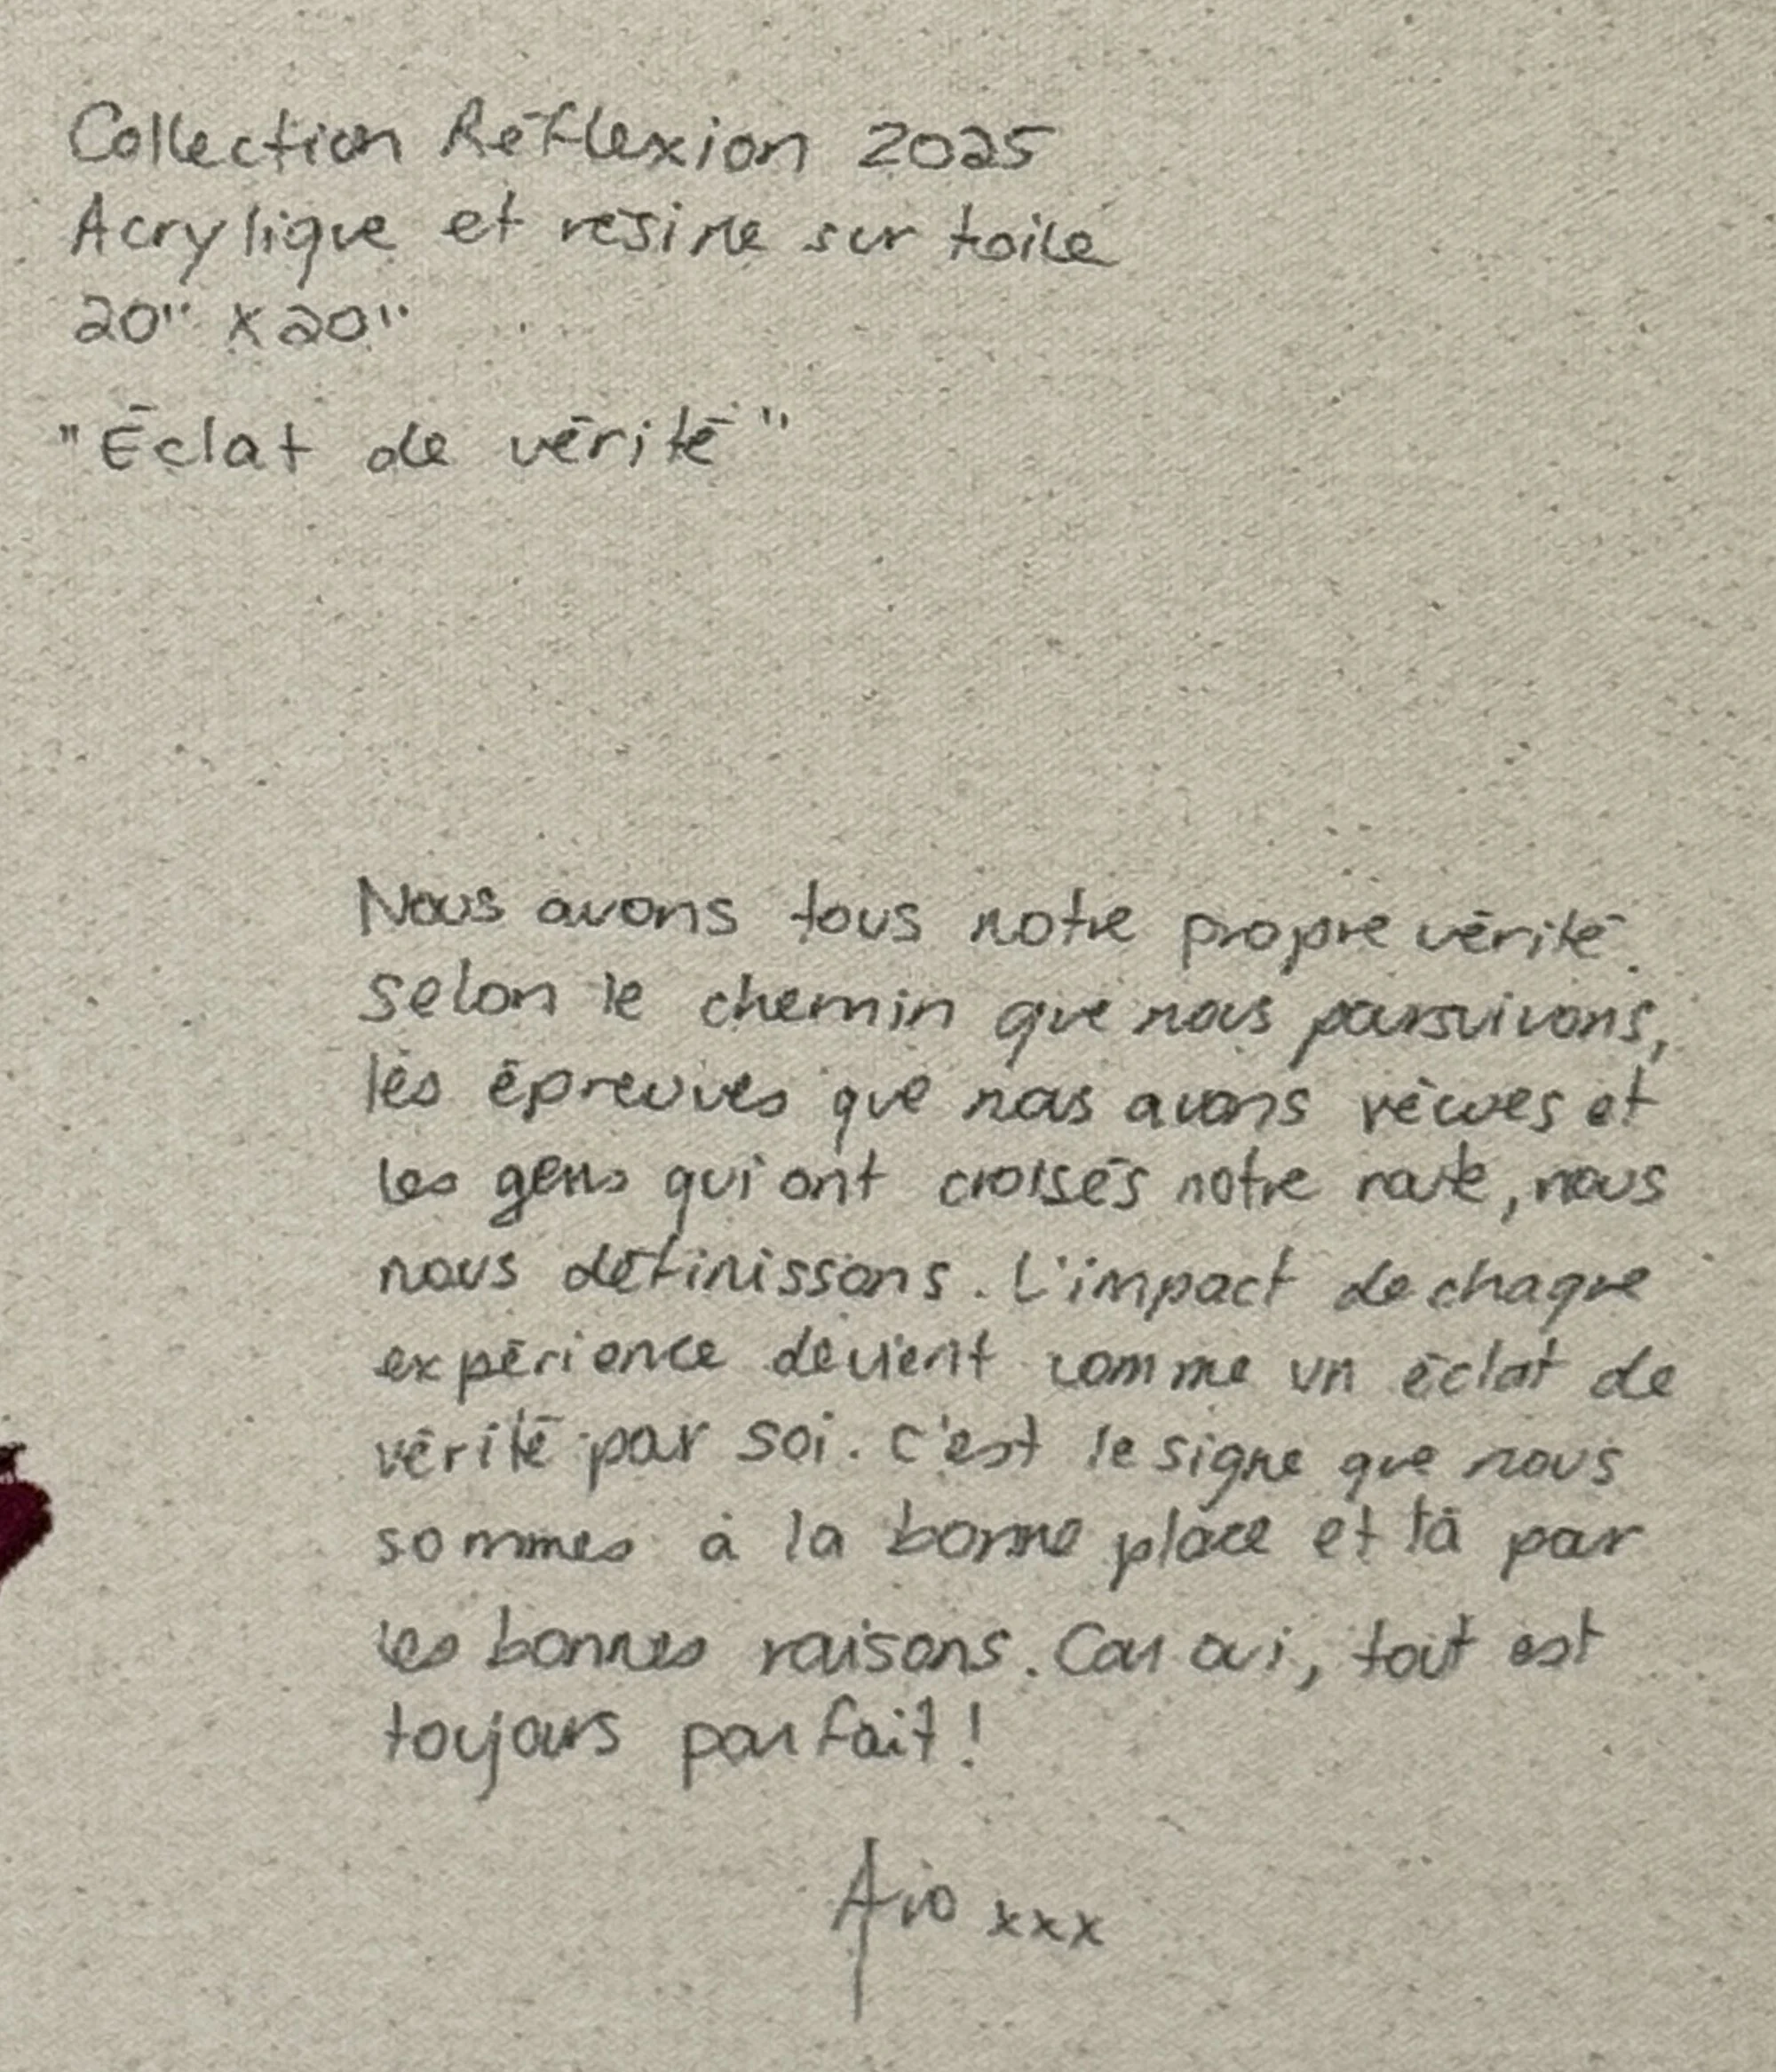 Collection Réflexion 2025
Acrylique et résine sur toile
20" x 20"
"Éclat de vérité"
Nous avons tous notre propre vérité.
Selon le chemin que nous poursuivons,
les épreuves que nous avons vécues et
les gens qui ont croisés notre route, nous
nous définissons. L'impact de chaque
expérience devient comme un éclat de
vérité par soi. C'est le signe que nous
sommes à la bonne place et là par
les bonnes raisons. Car oui, tout est
toujours parfait!
xxx